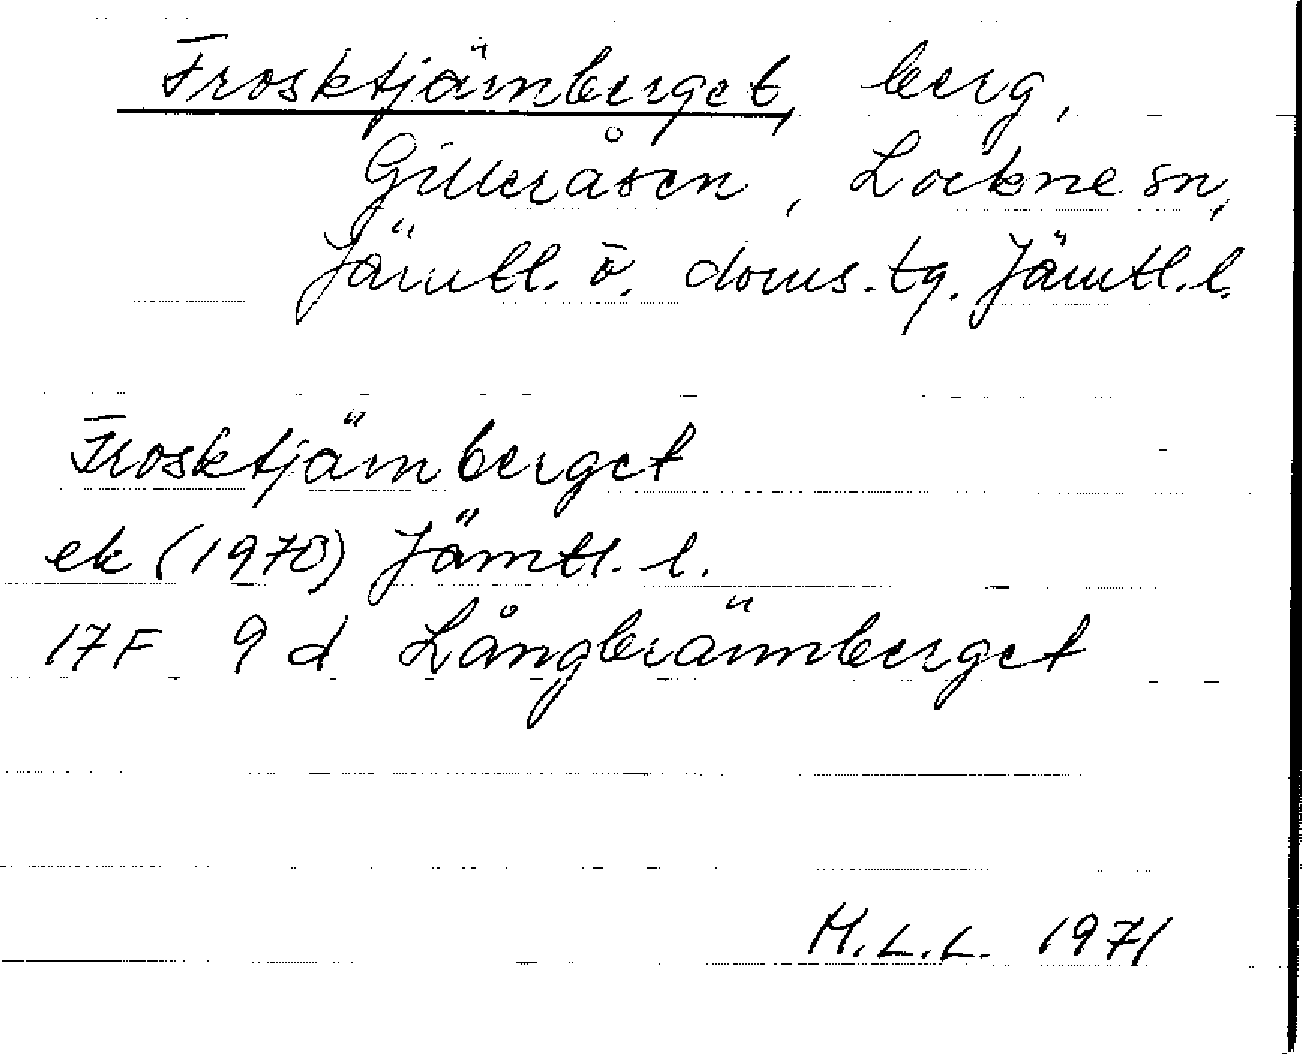 Frosktjärnberget, berg,
Gilleråsen, Lockne sn,
Jämtl. ö. doms. tg. Jämtl. l.
Frosktjärnberget
ek (1970) Jämtl. l.
17F 9d Långbrännberget
M.L.L. 1971